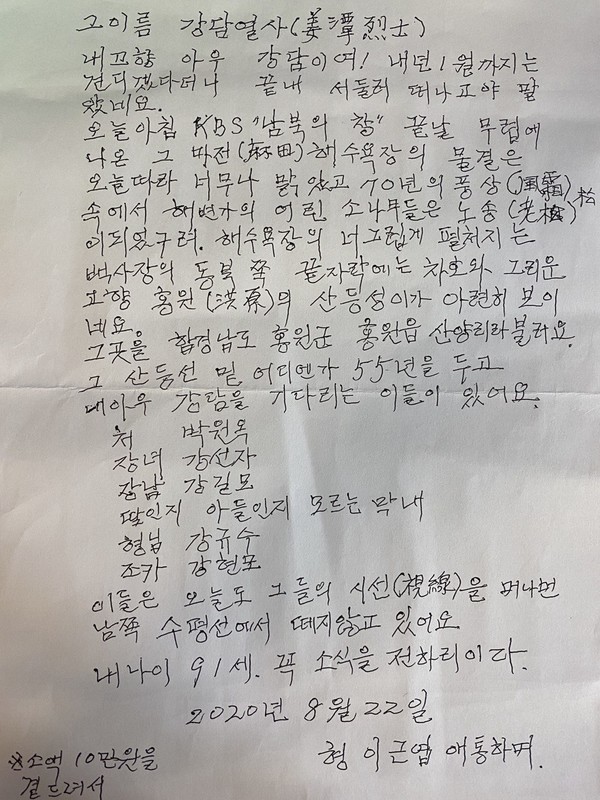 그이름 강담열사(姜潭烈士)
내고향 아우 강담이여! 내년1월까지는
견디겠다더니 끝내 서둘러 떠나고야 말
았네요.
오늘아침 KBS "남북의 창" 끝날 무렵에
나온 그 마전(麻田)해수욕장의 물결은
오늘따라 너무나 맑았고 70년의 풍상(風霜)
속에서 해변가의 어린 소나무들은 노송(老松)
이되었구려. 해수욕장의 너그럽게 펼쳐지는
백사장의 동북 쪽 끝자락에는 차호와 그리운
고향 홍원(洪原)의 산등성이가 아련히 보이
네요.
그곳을 함경남도 홍원군 홍원읍 산양리라불러요.
그 산등선 밑 어디엔가 55년을 두고
내아우 강담을 기다리는 이들이 있어요.
처 박원옥
장녀 강선자
장남 강길모
딸인지 아들인지 모르는 막내
형님 강규수
조카 강현포
이들은 오늘도 그들의 시선(視線)을 머나먼
남쪽 수평선에서 떼지않고 있어요
내나이 91세. 꼭 소식을 전하리이다.
2020년 8월 22일
형 이근엽 애통하며.
※소액 10만원을
곁드려서